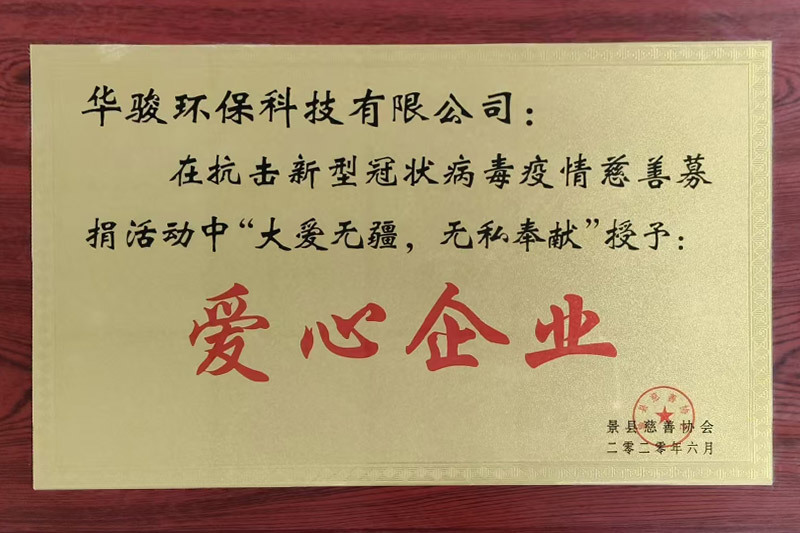 华骏环保科技有限公司：
在抗击新型冠状病毒疫情慈善募
捐活动中“大爱无疆，无私奉献”授予：
爱心企业
景县慈善协会
景县慈善协会
二零二零年六月